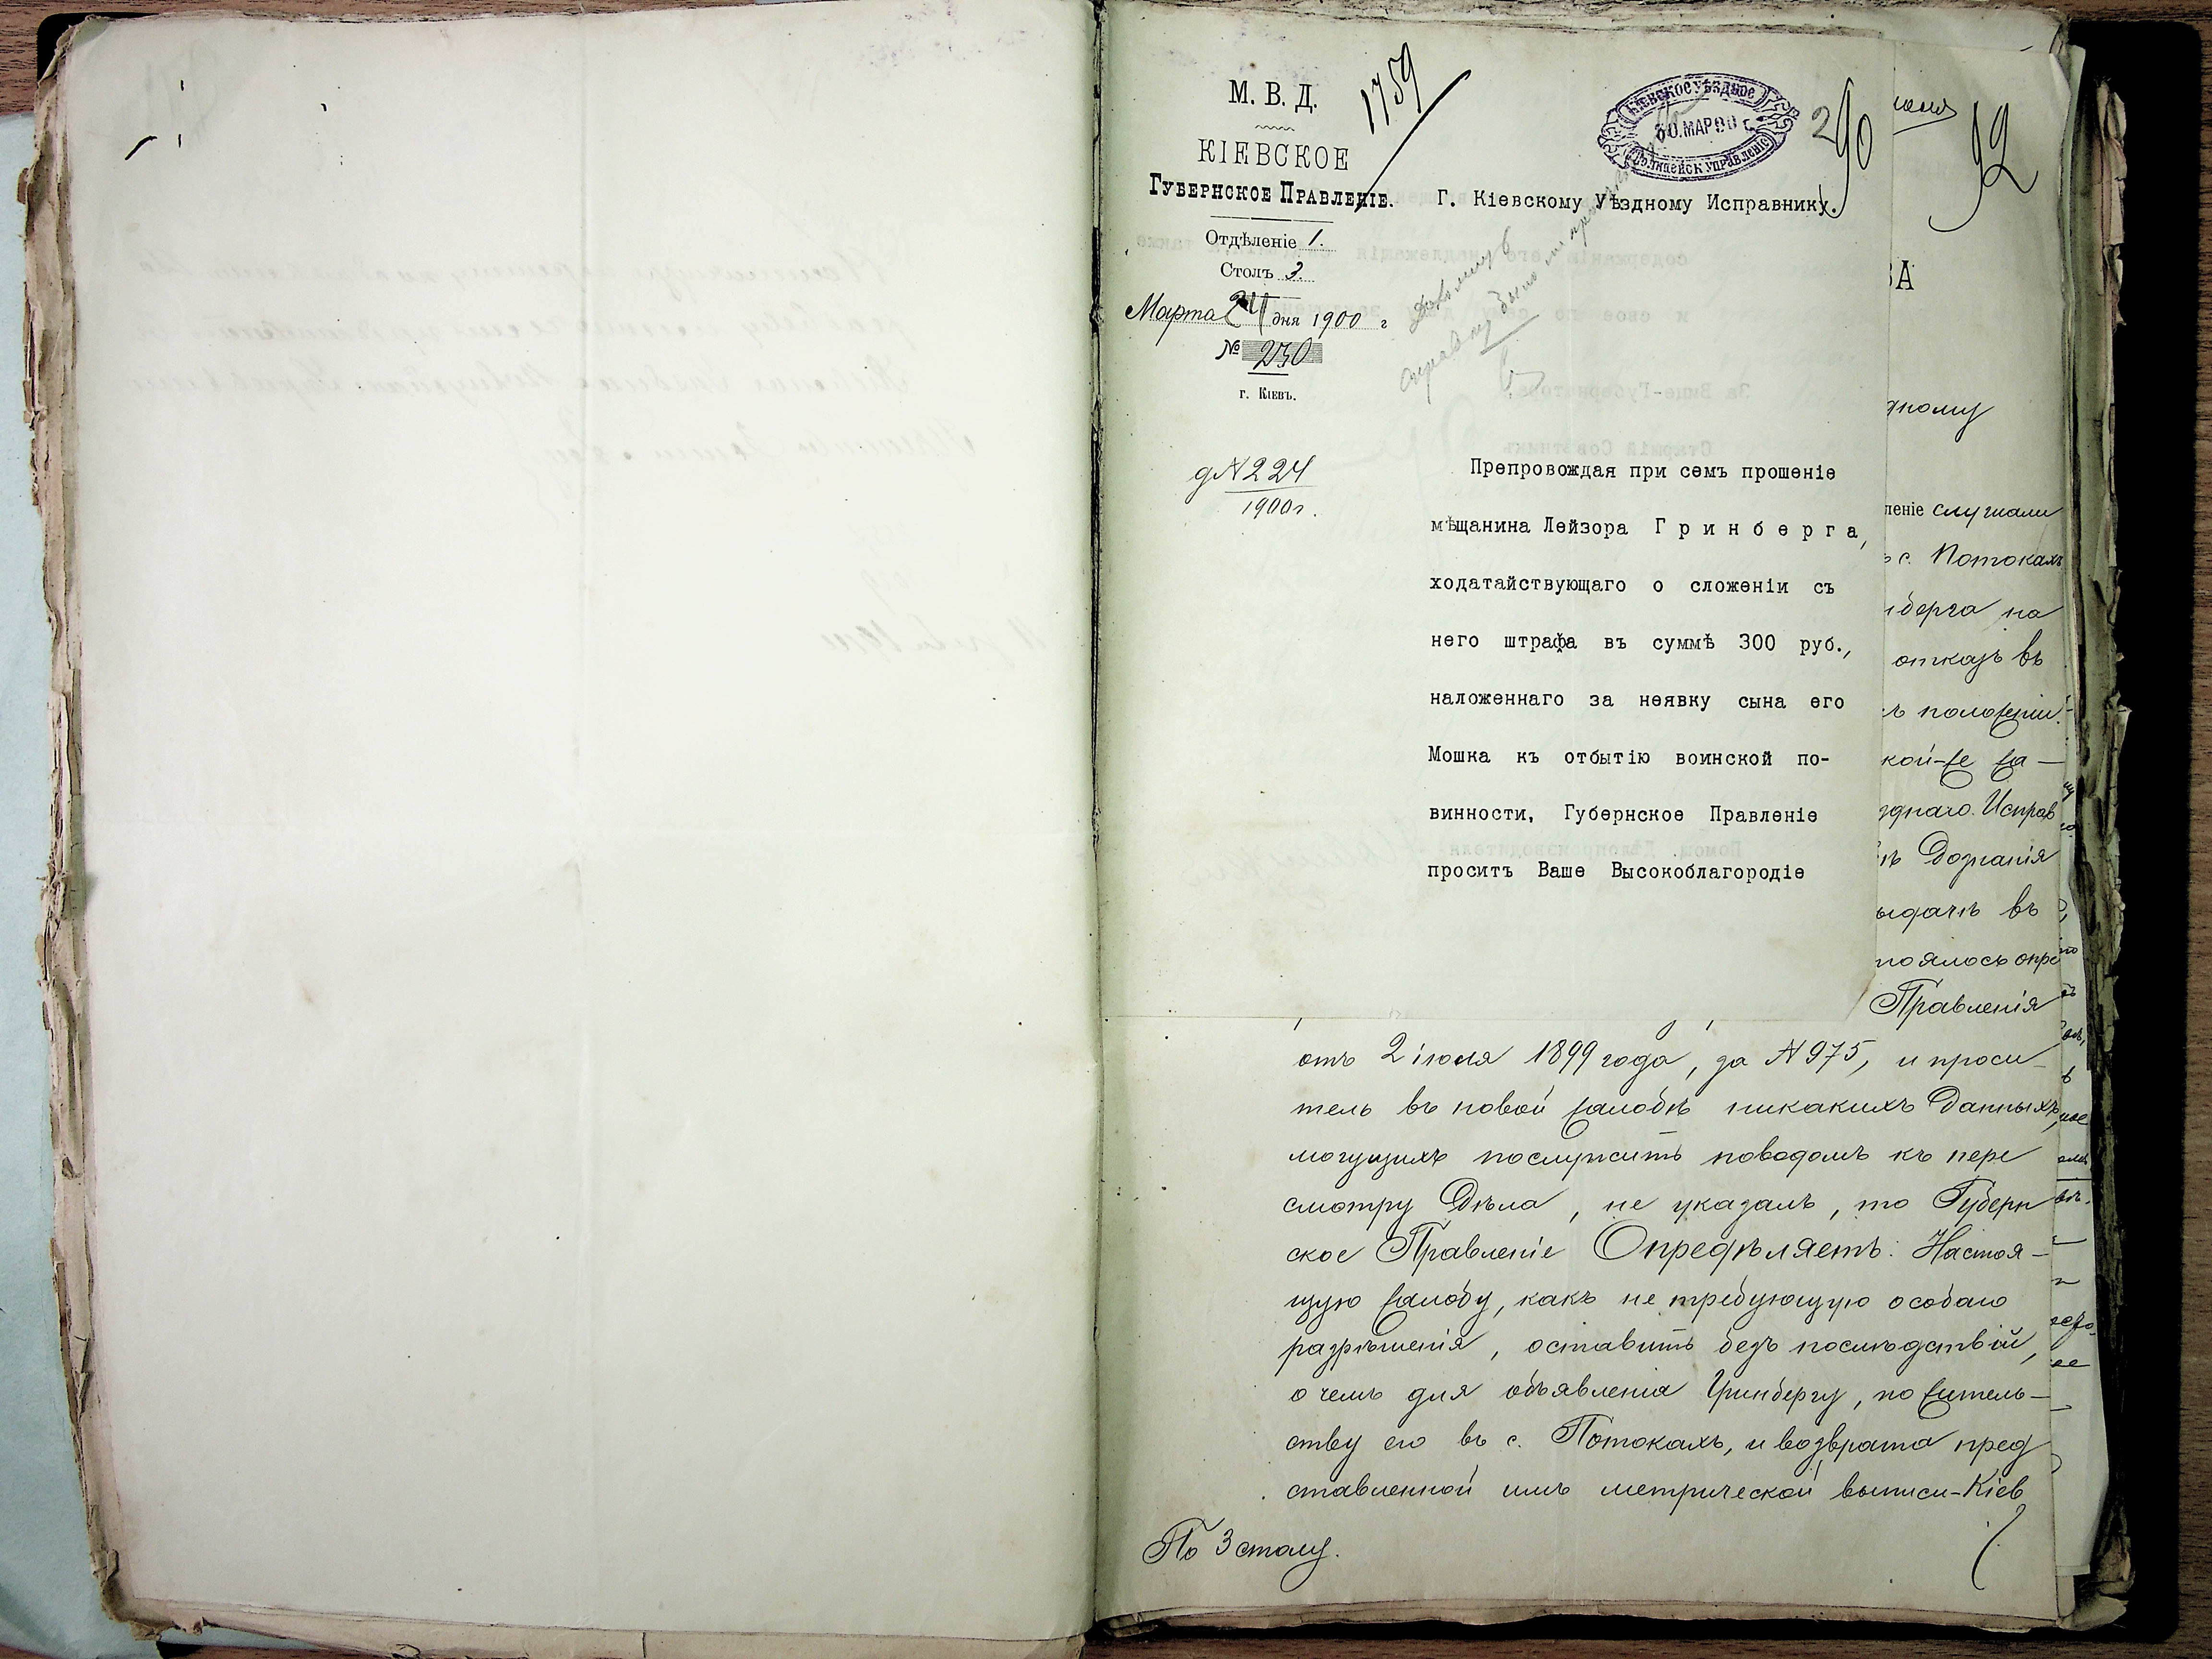 М. В. Д.
КІЕВСКОЕ
ГУБЕРНСКОЕ ПРАВЛЕНІЕ.
Отдѣленіе 1.
Столъ 3.
Марта 24 дня 1900 г
№ 230
г. КІЕВЪ.
д N 224
1900 г.
1759
КІЕВСКОЕ УѢЗДНОЕ
30. МАР 90 г.
ПОЛИЦЕЙСК УПРАВЛЕНІЕ
290
Г. Кіевскому Уѣздному Исправнику.
справку было ли
Препровождая при семъ прошеніе
мѣщанина Лейзора Гринберга,
ходатайствующаго о сложеніи съ
него штрафа въ суммѣ 300 руб.,
наложеннаго за неявку сына его
Мошка къ отбытію воинской по-
винности, Губернское Правленіе
проситъ Ваше Высокоблагородіе
92
дному
леніе слушали
с. Потокахъ
нберга на
отказъ въ
положеніи
кой-же жа-
зднаго Исправ
дознанія
ыдачѣ въ
тоялось опре
Правленія
отъ 2 іюля 1899 года, за N 975, и проси-
тель въ новой жалобѣ никакихъ данныхъ,
могущихъ послужить поводомъ къ пере
смотру дѣла, не указалъ, то Губерн
ское Правленіе Опредѣляетъ: Настоя-
щую жалобу, какъ не требующую особаго
разрѣшенія, оставить безъ послѣдствій,
о чемъ для объявленія Гринбергу, по житель-
ству его въ с. Потокахъ, и возврата пред
ставленной имъ метрической выписи-Кіев
По 3 столу.